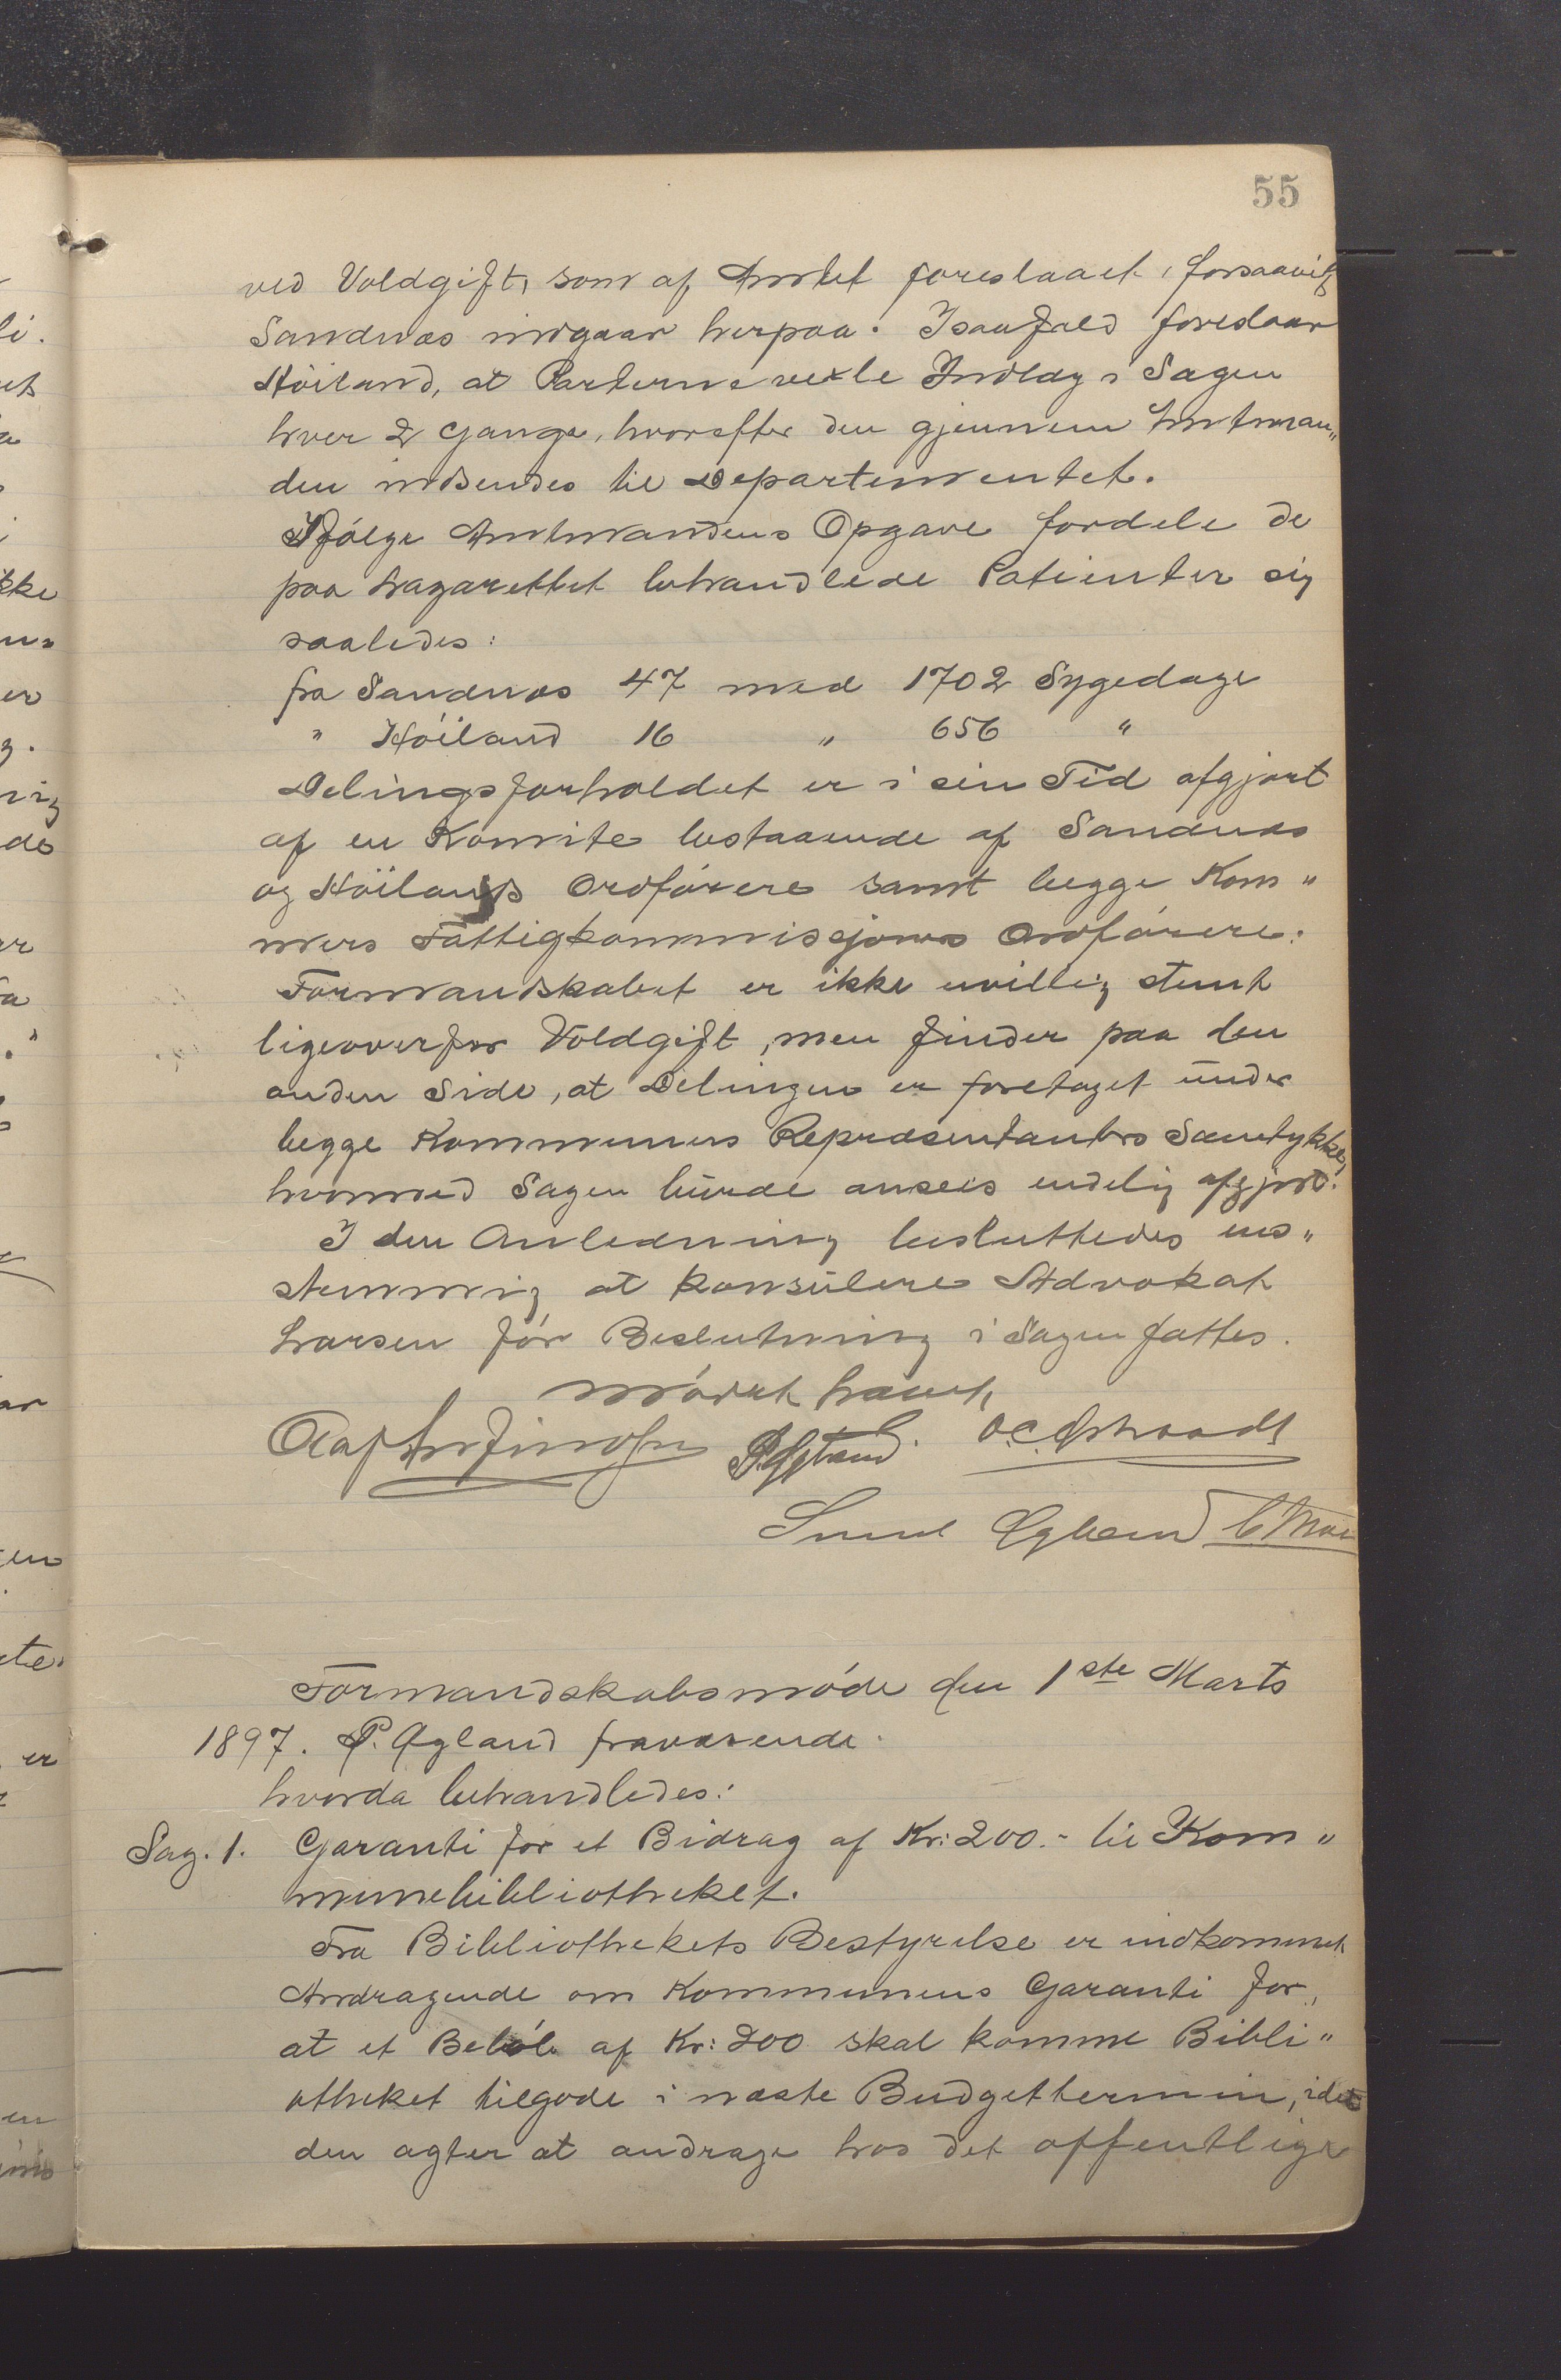 55
ved Voldgift, som af Amtet foreslaaet, forsaavidt
Sandnæs indgaar herpaa. Isaafald foreslaar
Höiland, at Parterne vexle Indlæg i Sagen
hver 2 Gange, hvorefter den gjennem Amtman„
den indsendes til Departementet.
Ifölge Amtmandens Opgave fordele de
paa Lazarettet behandlede Patienter sig
saaledes:
fra Sandnæs 47 med 1702 Sygedage
" Höiland 16 " 656 "
Delingsforholdet er i sin Tid afgjort
af en Komite bestaaende af Sandnæs
og Höilands Ordförere samt begge Kom„
mers Fattigkommissjoners Ordförere.
Formandskabet er ikke uvillig stemt
ligeoverfor Voldgift, men finder paa den
anden Side, at Delingen er foretaget under
begge Kommuners Repræsentanters Samtykke,
hvormed Sagen burde ansees endelig afgjort.
I den Anledning besluttedes ens„
stemmig at konsulere Advokat
Larsen för Beslutning i Sagen fattes.
Mödet hævet,
P. Egeland.
Egeland
Formandskabsmöde den 1ste Marts
1897. P. Egland fraværende.
hvorda behandledes:
Sag. 1. Garanti for et Bidrag af Kr: 200.- til Kom„
munebibliotheket.
Fra Bibliothekets Bestyrelse er indkommet
Andragende om Kommunens Garanti for,
at et Belöb af Kr: 200 skal komme Bibli„
otheket tilgode i næste Budgettermin, idet
den agter at andrage hos det offentlige